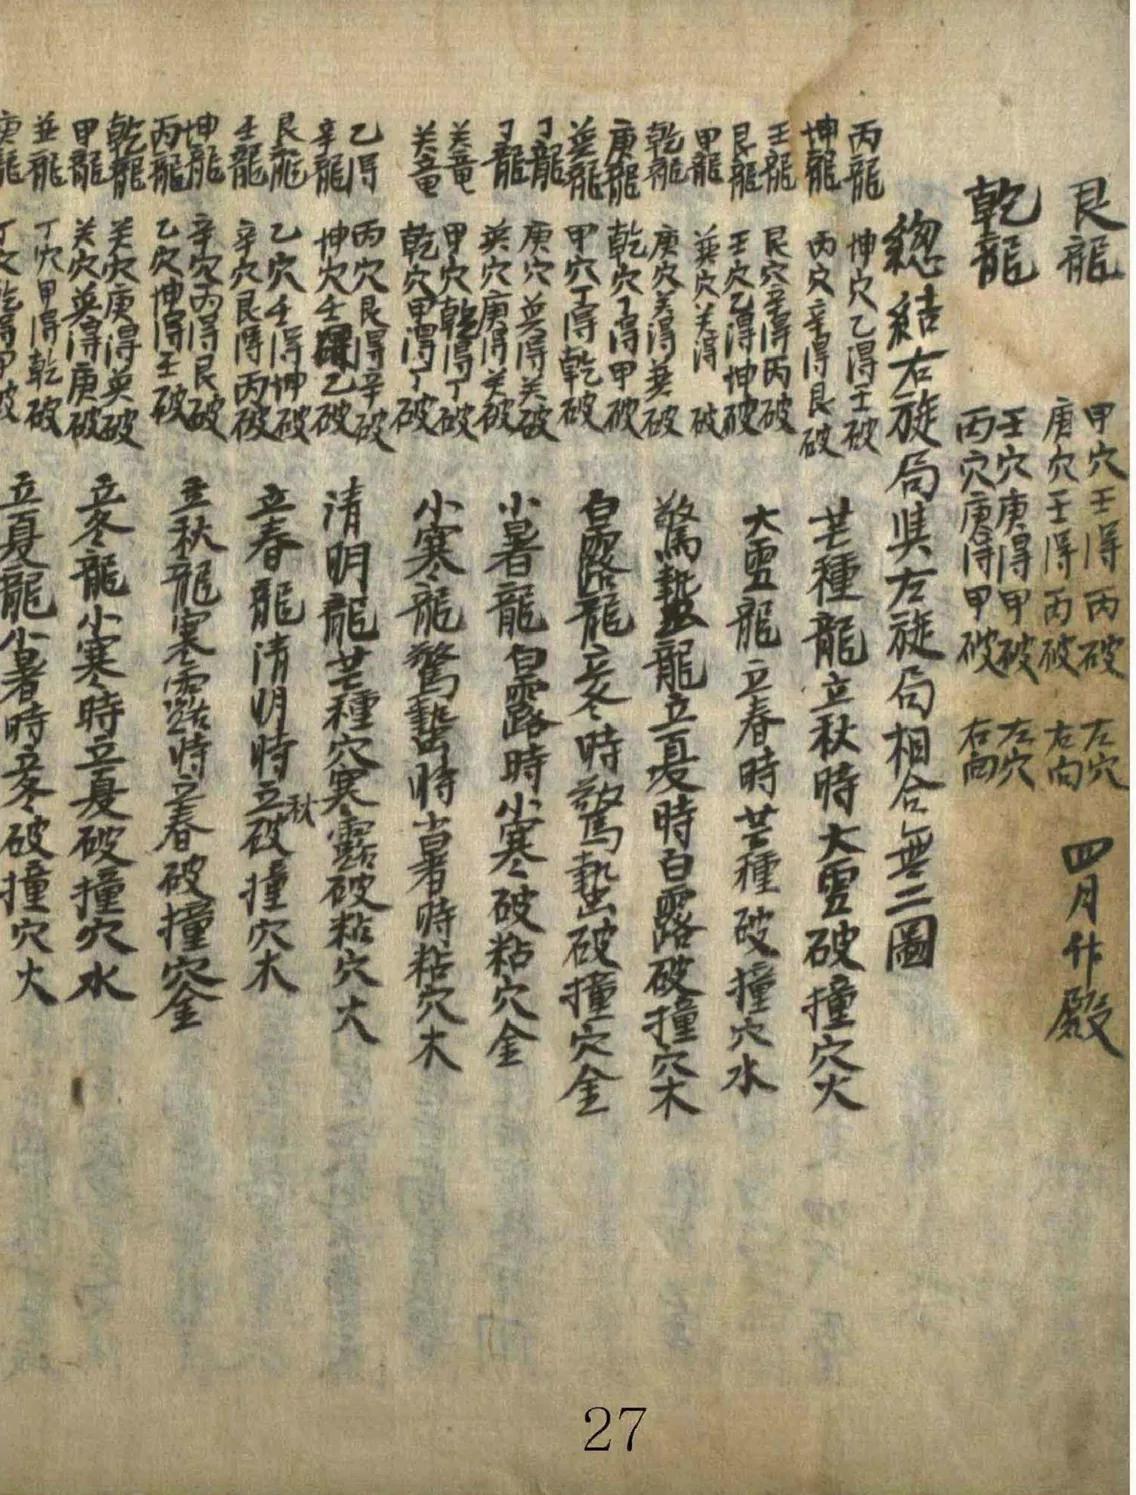 艮龍
甲穴壬得丙破 左穴
庚穴壬得丙破 右向
四月作殿
乾龍
壬穴庚得甲破 左穴
丙穴庚得甲破 右向
總結右旋局與左旋局相合無二圖
丙龍 坤穴乙得壬破
坤龍 丙穴辛得艮破
芒種龍立秋時大雪破撞穴火
壬龍 艮穴辛得丙破
艮龍 壬穴乙得坤破
大雪龍立春時芒種破撞穴水
甲龍 巽穴关得 破
乾龍 庚穴关得巽破
驚蟄龍立夏時白露破撞穴木
庚龍 乾穴丁得甲破
巽龍 甲穴丁得乾破
白露龍立冬時驚蟄破撞穴金
丁龍 庚穴巽得关破
丁龍 巽穴庚得关破
小暑龍白露時小寒破粘穴金
关竜 甲穴乾得丁破
关竜 乾穴甲得丁破
小寒龍驚蟄時小暑時粘穴木
乙得 丙穴艮得辛破
辛龍 坤穴壬 乙破
清明龍芒種穴寒露破粘穴火
艮龍 乙穴壬得坤破
壬龍 辛穴艮得丙破
立春龍清明時立秋破撞穴木
坤龍 辛穴丙得艮破
丙龍 乙穴坤得壬破
立秋龍寒露時立春破撞穴金
乾龍 关穴庚得巽破
甲龍 关穴巽得庚破
立冬龍小寒時立夏破撞穴水
巽龍 丁穴甲得乾破
庚龍 丁穴乾得甲破
立夏龍小暑時立冬破撞穴火
27